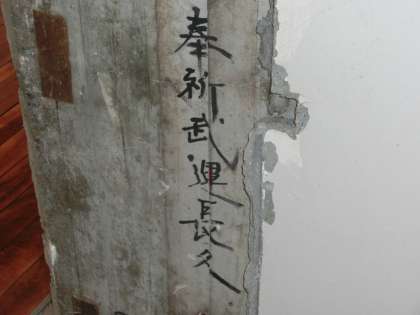 奉祈武運長久